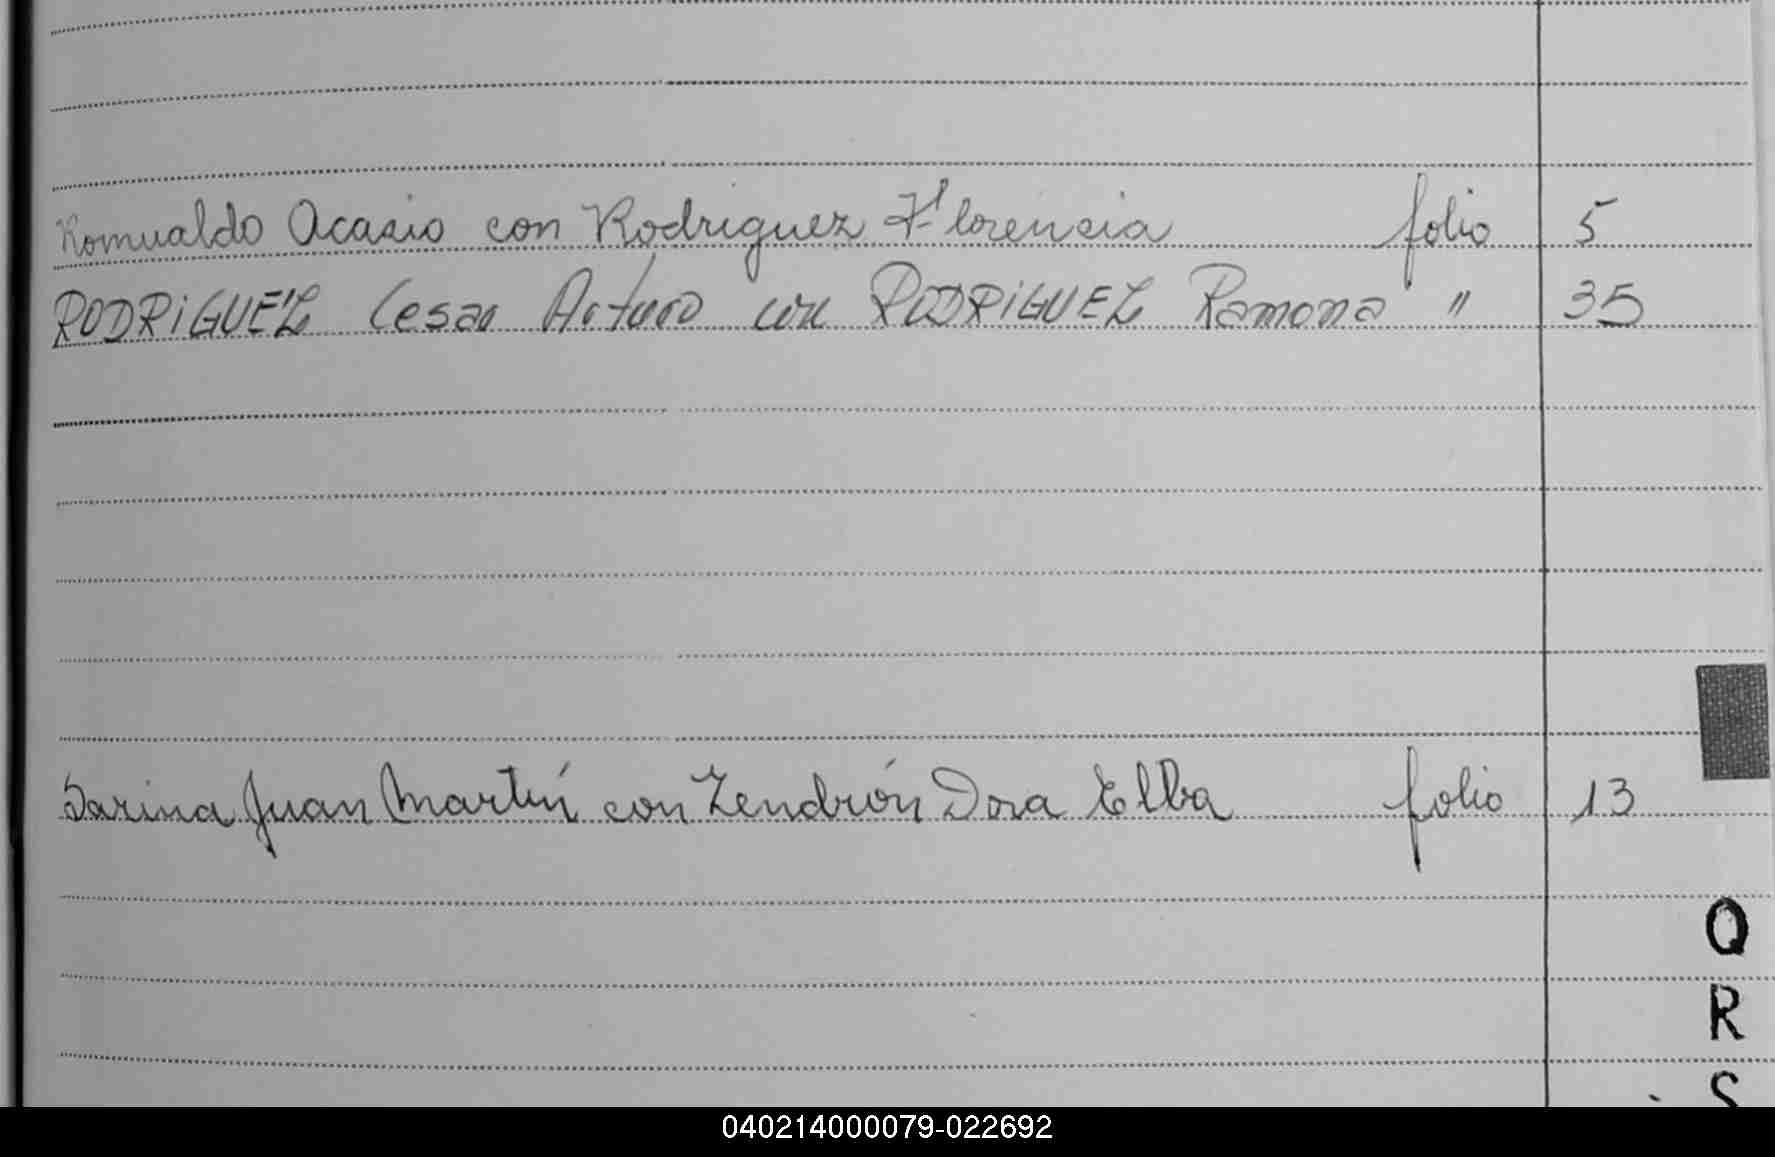 Romualdo Acasio con Rodriguez Florencia folio 5
RODRIGUEZ Cesar Arturo con RODRIGUEZ Ramona " 35
Sarina Juan Martín con Zendrón Dora Elba folio 13
Q
R
S
040214000079-022692